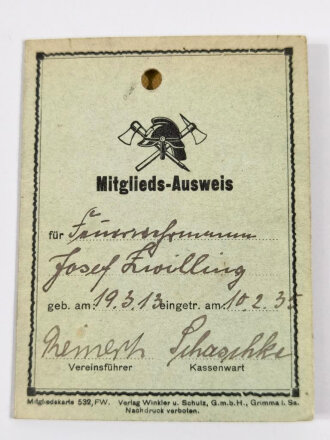 Mitglieds-Ausweis
für Feuerwehrmann
Josef Zwilling
geb. am 19.3.13 eingetr. am 10.2.35
Schaschke
Vereinsführer Kassenwart
Mitgliedskarte 532, FW. Verlag Winkler u. Schulz, G.m.b.H., Grimma i. Sa.
Nachdruck verboten.